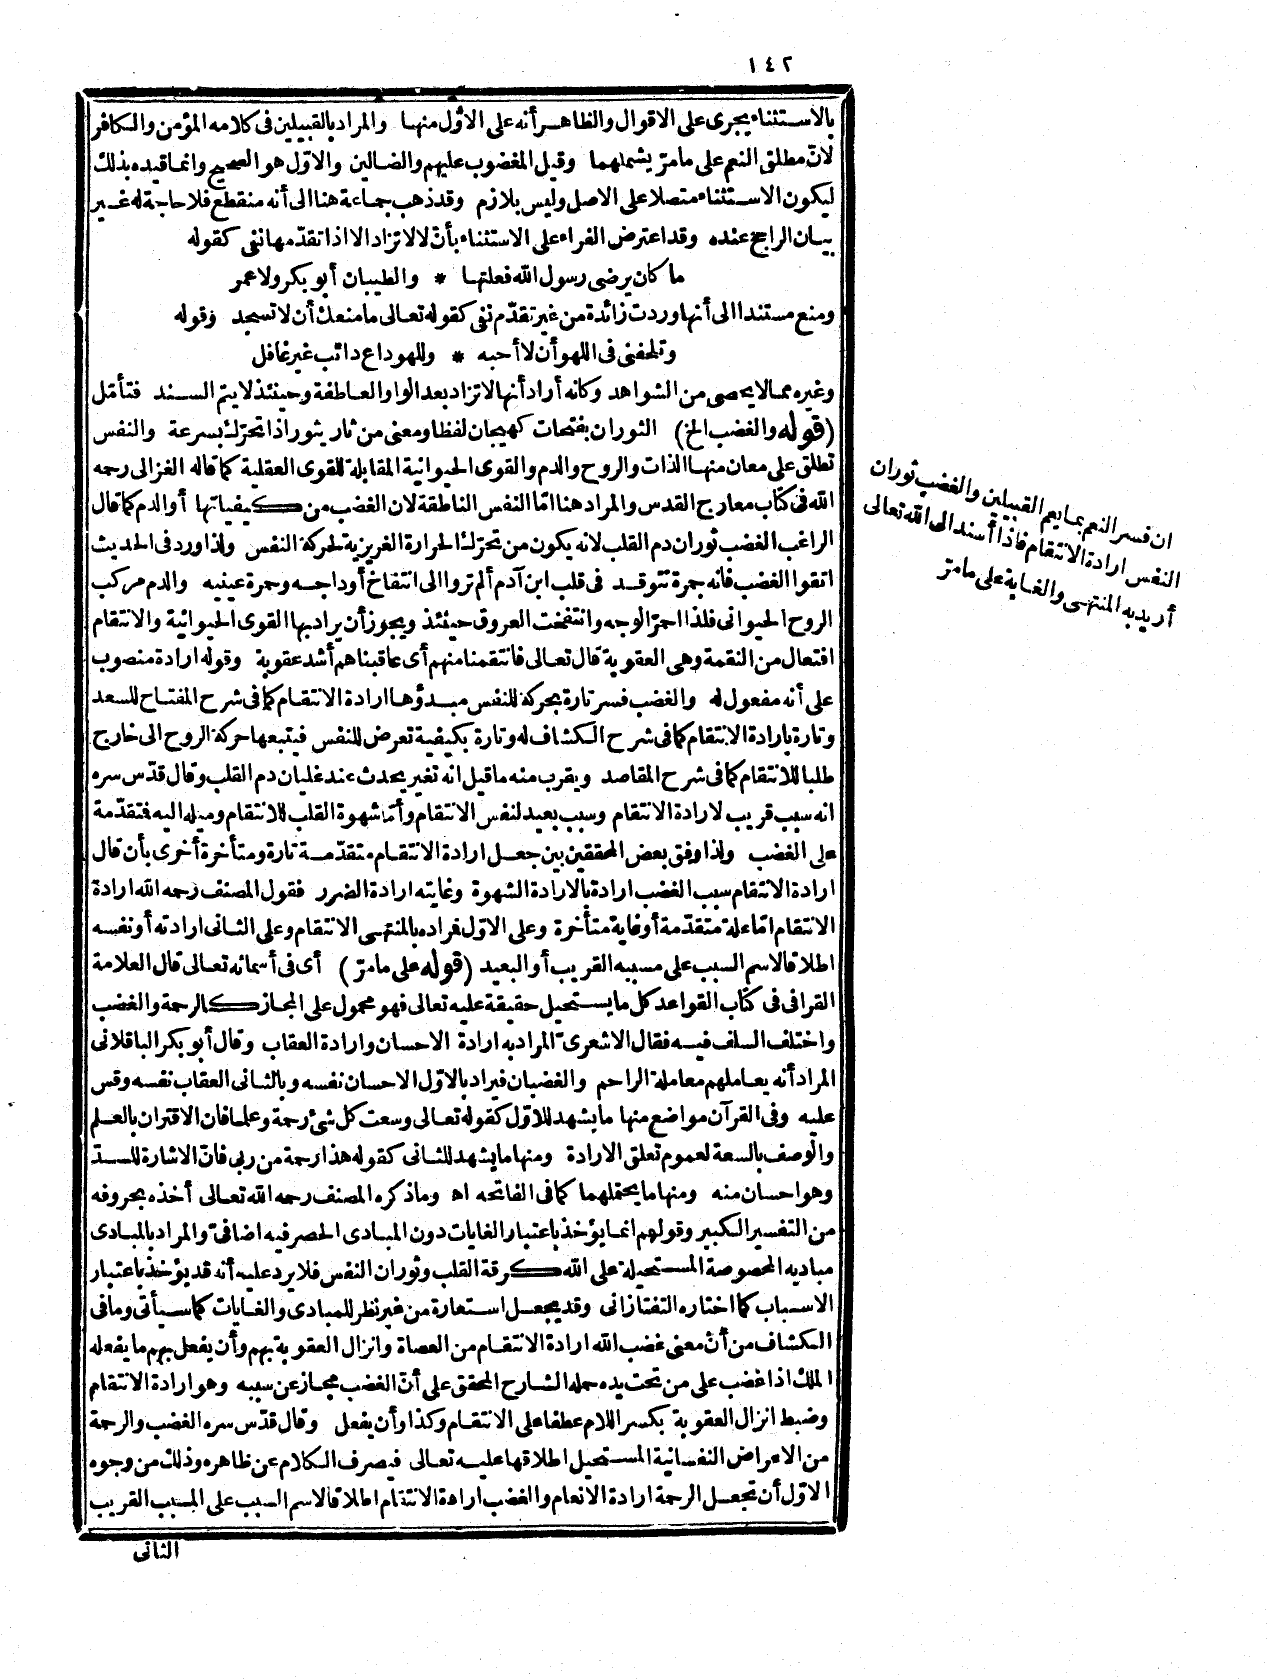 ١٤٢
بالاستثناء يجرى على الاقوال والظاهر أنه على الاوّل منها والمراد بالقبيلين فى كلامه المؤمن والكافر
لانّ مطلق النعم على مامرّ يشملهما وقيل المغضوب عليهم والضالين والاوّل هو الصحيح وانماقيده بذلك
ليكون الاستثناء متصلا على الاصل وليس بلازم وقدذهب جماعة هنا الى أنه منقطع فلا حاجة له غير
بيان الراجح عنده وقداعترض الفراء على الاستثناء بأنّ لا لاتزاد الا اذا تقدّمها نفى كقوله
ما كان يرضى رسول الله فعلتها * والطيبان أبو بكر ولا عمر
ومنع مستندا الى أنها وردت زائدة من غير تقدّم نفى كقوله تعالى مامنعك أن لا تسجد وقوله
وتلحفنى فى اللهو أن لا أحبه * وللهو داع دائب غير غافل
وغيره مما لا يحصى من الشواهد وكانه أراد أنها لاتزاد بعد الواو العاطفة وحينئذ لا يتمّ السند فتأمّل
(قوله والغضب الخ) الثوران بفتحات كهيجان لفظا ومعنى من ثار يثور اذا تحرّك بسرعة والنفس
تطلق على معان منها الذات والروح والدم والقوى الحيوانية المقابلة للقوى العقلية كما قاله الغزالى رحمه
الله فى كتاب معارج القدس والمراد هنا امّا النفس الناطقة لان الغضب من كيفياتها أو الدم كما قال
الراغب الغضب ثوران دم القلب لانه يكون من تحرّك الحرارة الغريزية لحركة النفس ولذا ورد فى الحديث
اتقوا الغضب فانه جمرة تتوقد فى قلب ابن آدم ألم تروا الى انتفاخ أوداجه وحمرة عينيه والدم مركب
الروح الحيوانى فلذا احمرّ الوجه وانتفخت العروق حينئذ ويجوز أن يراد بها القوى الحيوانية والانتقام
افتعال من النقمة وهى العقوبة قال تعالى فانتقمنا منهم أى عاقبناهم أشد عقوبة وقوله ارادة منصوب
على أنه مفعول له والغضب فسر تارة بحركة للنفس مبدؤها ارادة الانتقام كما فى شرح المفتاح للسعد
وتارة بارادة الانتقام كما فى شرح الكشاف له وتارة بكيفية تعرض للنفس فيتبعها حركة الروح الى خارج
طلبا للانتقام كما فى شرح المقاصد ويقرب منه ماقيل انه تغير يحدث عند غليان دم القلب وقال قدّس سره
انه سبب قريب لارادة الانتقام وسبب بعيد لنفس الانتقام وأمّا شهوة القلب للانتقام وميله اليه فتقدّمة
على الغضب ولذا وفق بعض المحققين بين جعل ارادة الانتقام متقدّمة تارة ومتأخرة أخرى بأن قال
ارادة الانتقام سبب الغضب ارادة بالارادة الشهوة وغايته ارادة الضرر فقول المصنف رحمه الله ارادة
الانتقام امّا علة متقدّمة أو غاية متأخرة وعلى الاوّل فراده بالمنتهى الانتقام وعلى الثانى ارادته أو نفسه
اطلاقا لاسم السبب على مسببه القريب أو البعيد (قوله على مامرّ) أى فى أسمائه تعالى قال العلامة
القرافى فى كتاب القواعد كل ما يستحيل حقيقة عليه تعالى فهو محمول على المجاز كالرحمة والغضب
واختلف السلف فيه فقال الاشعرىّ المراد به ارادة الاحسان وارادة العقاب وقال أبو بكر الباقلانى
المراد أنه يعاملهم معاملة الراحم والغضبان فيراد بالاوّل الاحسان نفسه وبالثانى العقاب نفسه وقس
عليه وفى القرآن مواضع منها ما يشهد للاوّل كقوله تعالى وسعت كل شئ رحمة وعلما فان الاقتران بالعلم
والوصف بالسعة لعموم تعلق الارادة ومنها ما يشهد للثانى كقوله هذا رحمة من ربى فانّ الاشارة للسدّ
وهو احسان منه ومنها ما يحتملهما كما فى الفاتحه اه وماذكره المصنف رحمه الله تعالى أخذه بحروفه
من التفسير الكبير وقولهم انما يؤخذ باعتبار الغايات دون المبادى الحصر فيه اضافىّ والمراد بالمبادى
مباديه المخصوصة المستحيلة على الله كرقة القلب وثوران النفس فلا يرد عليه أنه قد يؤخذ باعتبار
الاسباب كما اختاره التفتازانى وقد يجعل استعارة من غير نظر للمبادى والغايات كما سيأتى ومافى
الكشاف من أنّ معنى غضب الله ارادة الانتقام من العصاة وانزال العقوبة بهم وأن يفعل بهم ما يفعله
الملك اذا غضب على من تحت يده حمله الشارح المحقق على أنّ الغضب مجاز عن سببه وهو ارادة الانتقام
وضبط انزال العقوبة بكسر اللام عطفا على الانتقام وكذا وأن يفعل وقال قدّس سره الغضب والرحمة
من الاعراض النفسانية المستحيل اطلاقها عليه تعالى فيصرف الكلام عن ظاهره وذلك من وجوه
الاوّل أن تجعل الرحمة ارادة الانعام والغضب ارادة الانتقام اطلاقا لاسم السبب على المسبب القريب
الثانى
ان فسر النعم بما يعم القبيلين والغضب ثوران
النفس ارادة الانتقام فاذا أسند الى الله تعالى
أريد به المنتهى والغاية على مامرّ